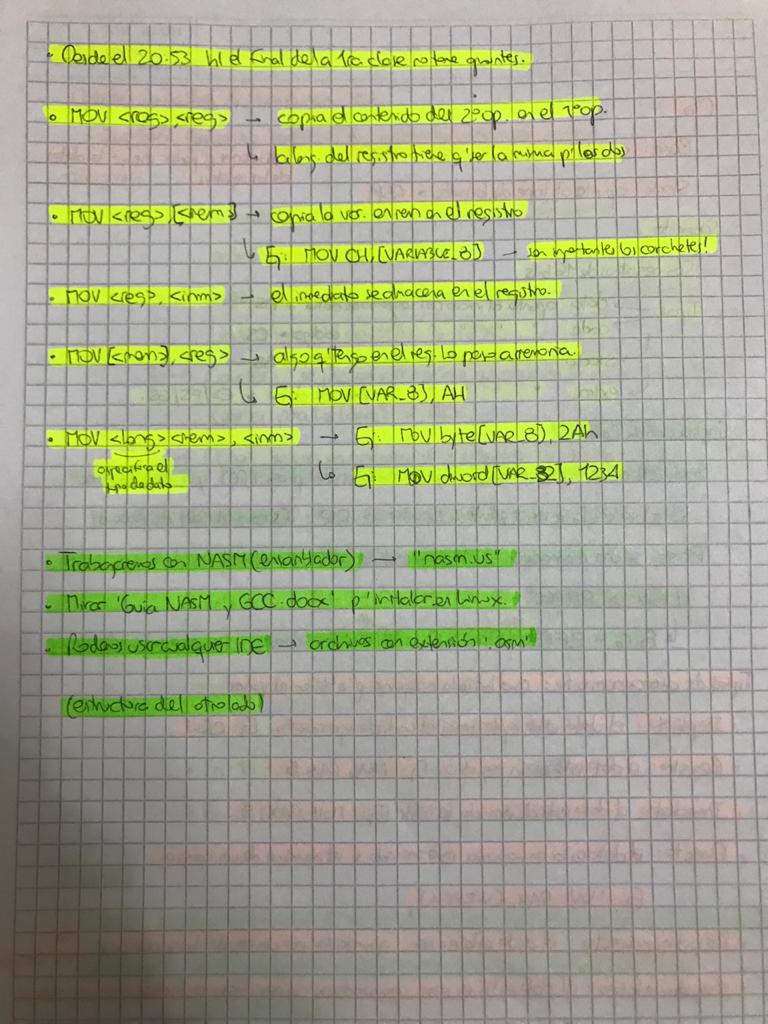 · Desde el 20:53 h/ el final de la 1ra clase no tiene apuntes.
• MOV <reg>, <reg> → copia el contenido del 2º op. en el 1º op.
↳ la long. del registro tiene q' ser la misma p' los dos
• MOV <reg>, [<mem>] → copia la var. en mem en el registro
↳ Ej: MOV CH, [VARIABLE_B] → son importantes los corchetes!
• MOV <reg>, <inm> → el inmediato se almacena en el registro.
• MOV [<mem>], <reg> → algo q' tengo en el reg. lo paso a memoria.
↳ Ej: MOV [VAR_B], AH
• MOV <long> <mem>, <inm> → Ej: MOV byte [VAR_B], 2Ah
especifica el
tipo de dato
↳ Ej: MOV dword [VAR_32], 1234
• Trabajaremos con NASM (ensamblador) → "nasm.us"
• Mirar 'Guia NASM y GCC.docx' p' instalar en Linux.
• Podemos usar cualquier IDE → archivos con extensión '.asm'
(estructura del otro lado)